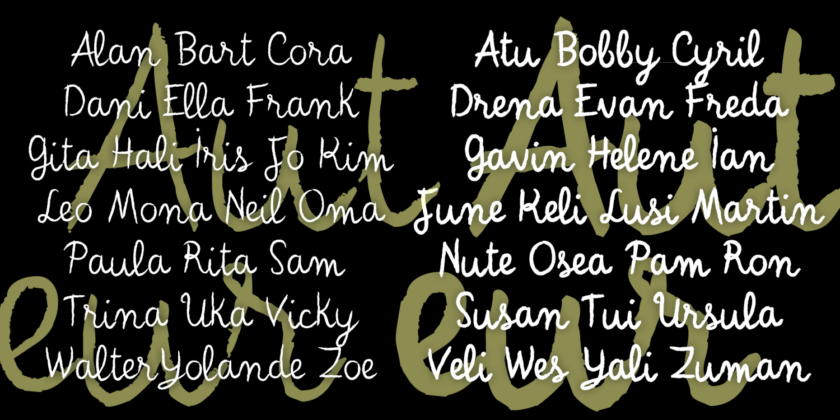 Alan Bart Cora
Dani Ella Frank
Gita Hali Iris Jo Kim
Leo Mona Neil Oma
Paula Rita Sam
Trina Uka Vicky
Walter Yolande Zoe
Atu Bobby Cyril
Drena Evan Freda
Gavin Helene Ian
June Keli Lusi Martin
Nute Osea Pam Ron
Susan Tui Ursula
Veli Wes Yali Zuman
Aut
eur
Aut
eur